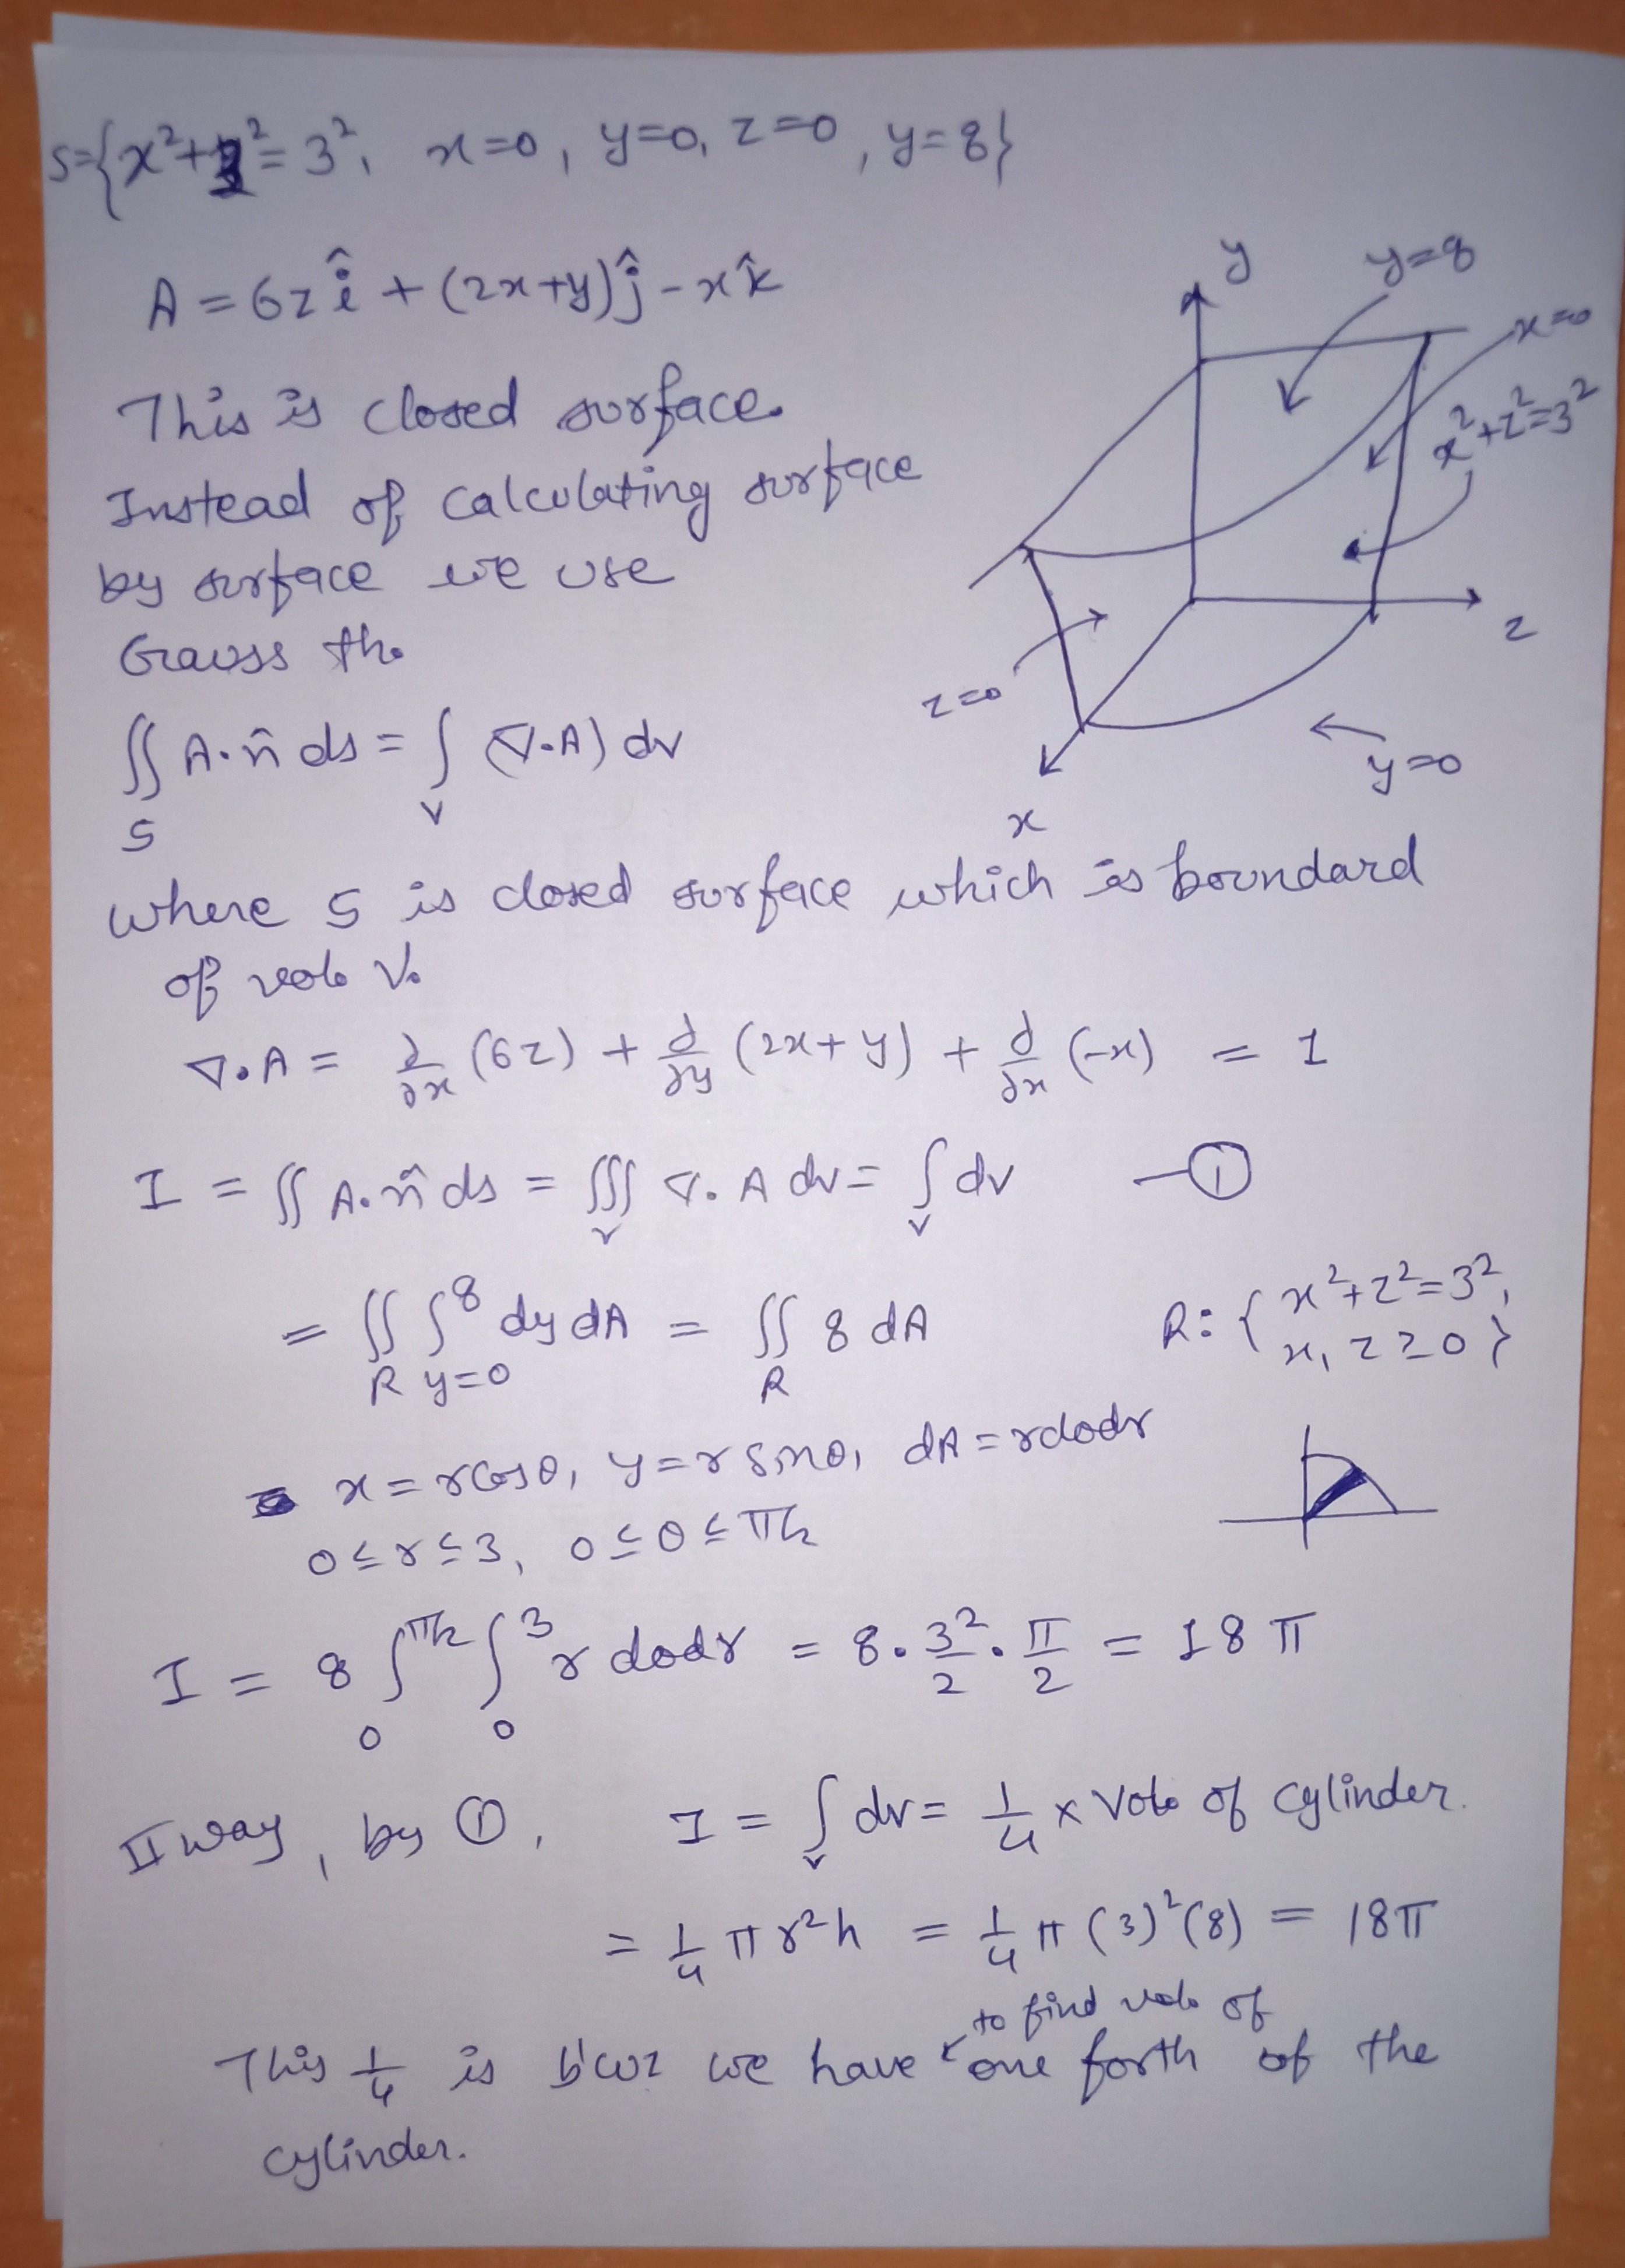 S={x²+z²=3², x=0, y=0, z=0, y=8}
A = 6z î + (2x+y) ĵ - x k̂
y
y=8
x=0
x²+z²=3²
z
z=0
y=0
x
This is closed surface.
Instead of calculating surface
by surface we use
Gauss th.
∬ A·n̂ ds = ∫ (∇·A) dv
S V
where S is closed surface which is boundard
of vol. V.
∇·A = ∂/∂x (6z) + ∂/∂y (2x+y) + ∂/∂x (-x) = 1
I = ∬ A·n̂ ds = ∭_V ∇·A dv = ∫_V dv —①
= ∬_R ∫_{y=0}^8 dy dA = ∬_R 8 dA R: {x²+z²=3²,
x, z ≥ 0}
x = r cosθ, y = r sinθ, dA = r dθ dr
0 ≤ r ≤ 3, 0 ≤ θ ≤ π/2
I = 8 ∫_0^{π/2} ∫_0^3 r dθ dr = 8 · 3²/2 · π/2 = 18 π
II way, by ①, I = ∫_V dv = 1/4 × Vol. of cylinder.
= 1/4 π r² h = 1/4 π (3)² (8) = 18π
to find vol. of
This 1/4 is b'coz we have one forth of the
cylinder.